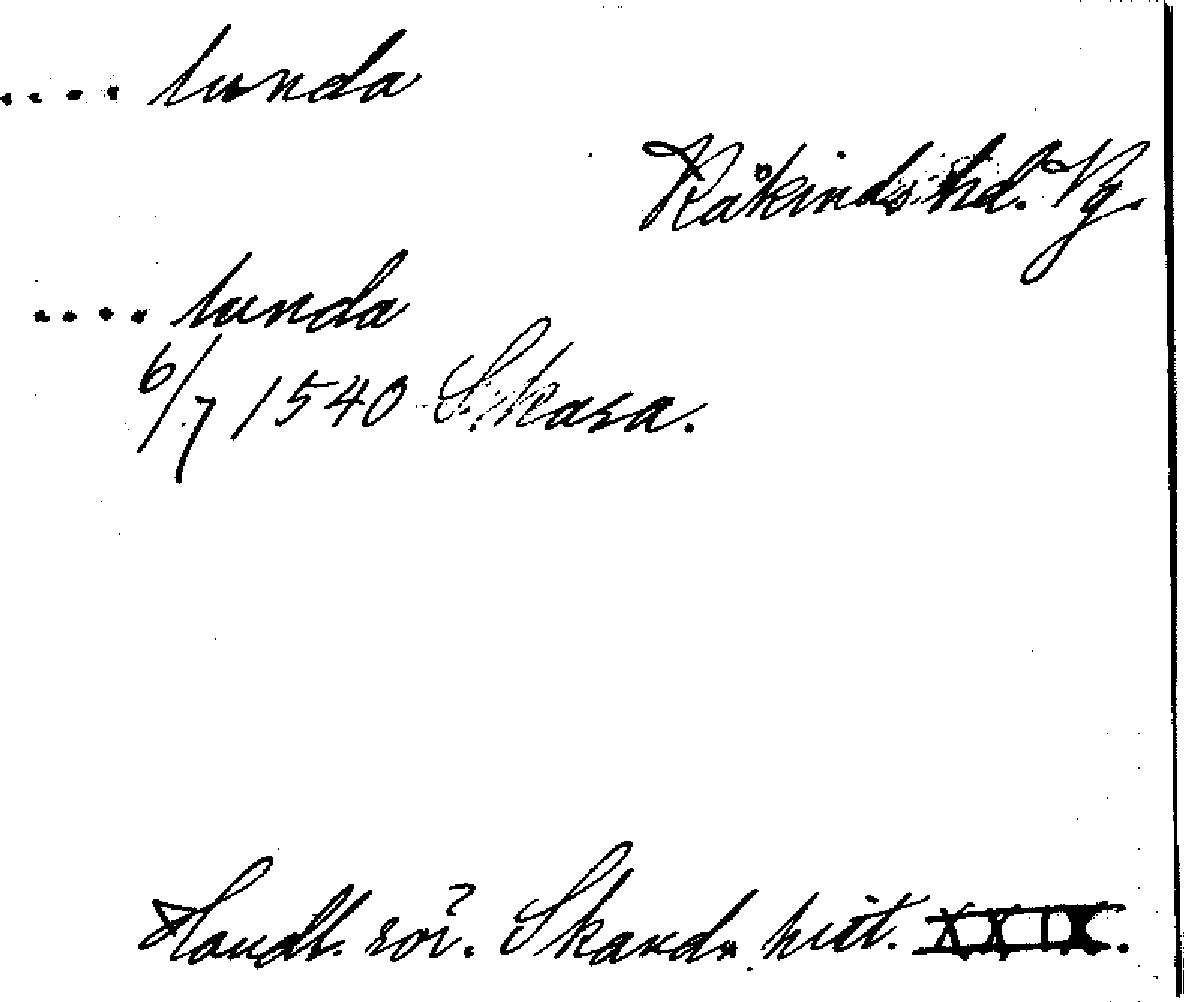 .... lunda
Kåkinds hd. Vg.
.... lunda
6/7 1540 Skara.
Handl. rör. Skand. hist. XXIX.